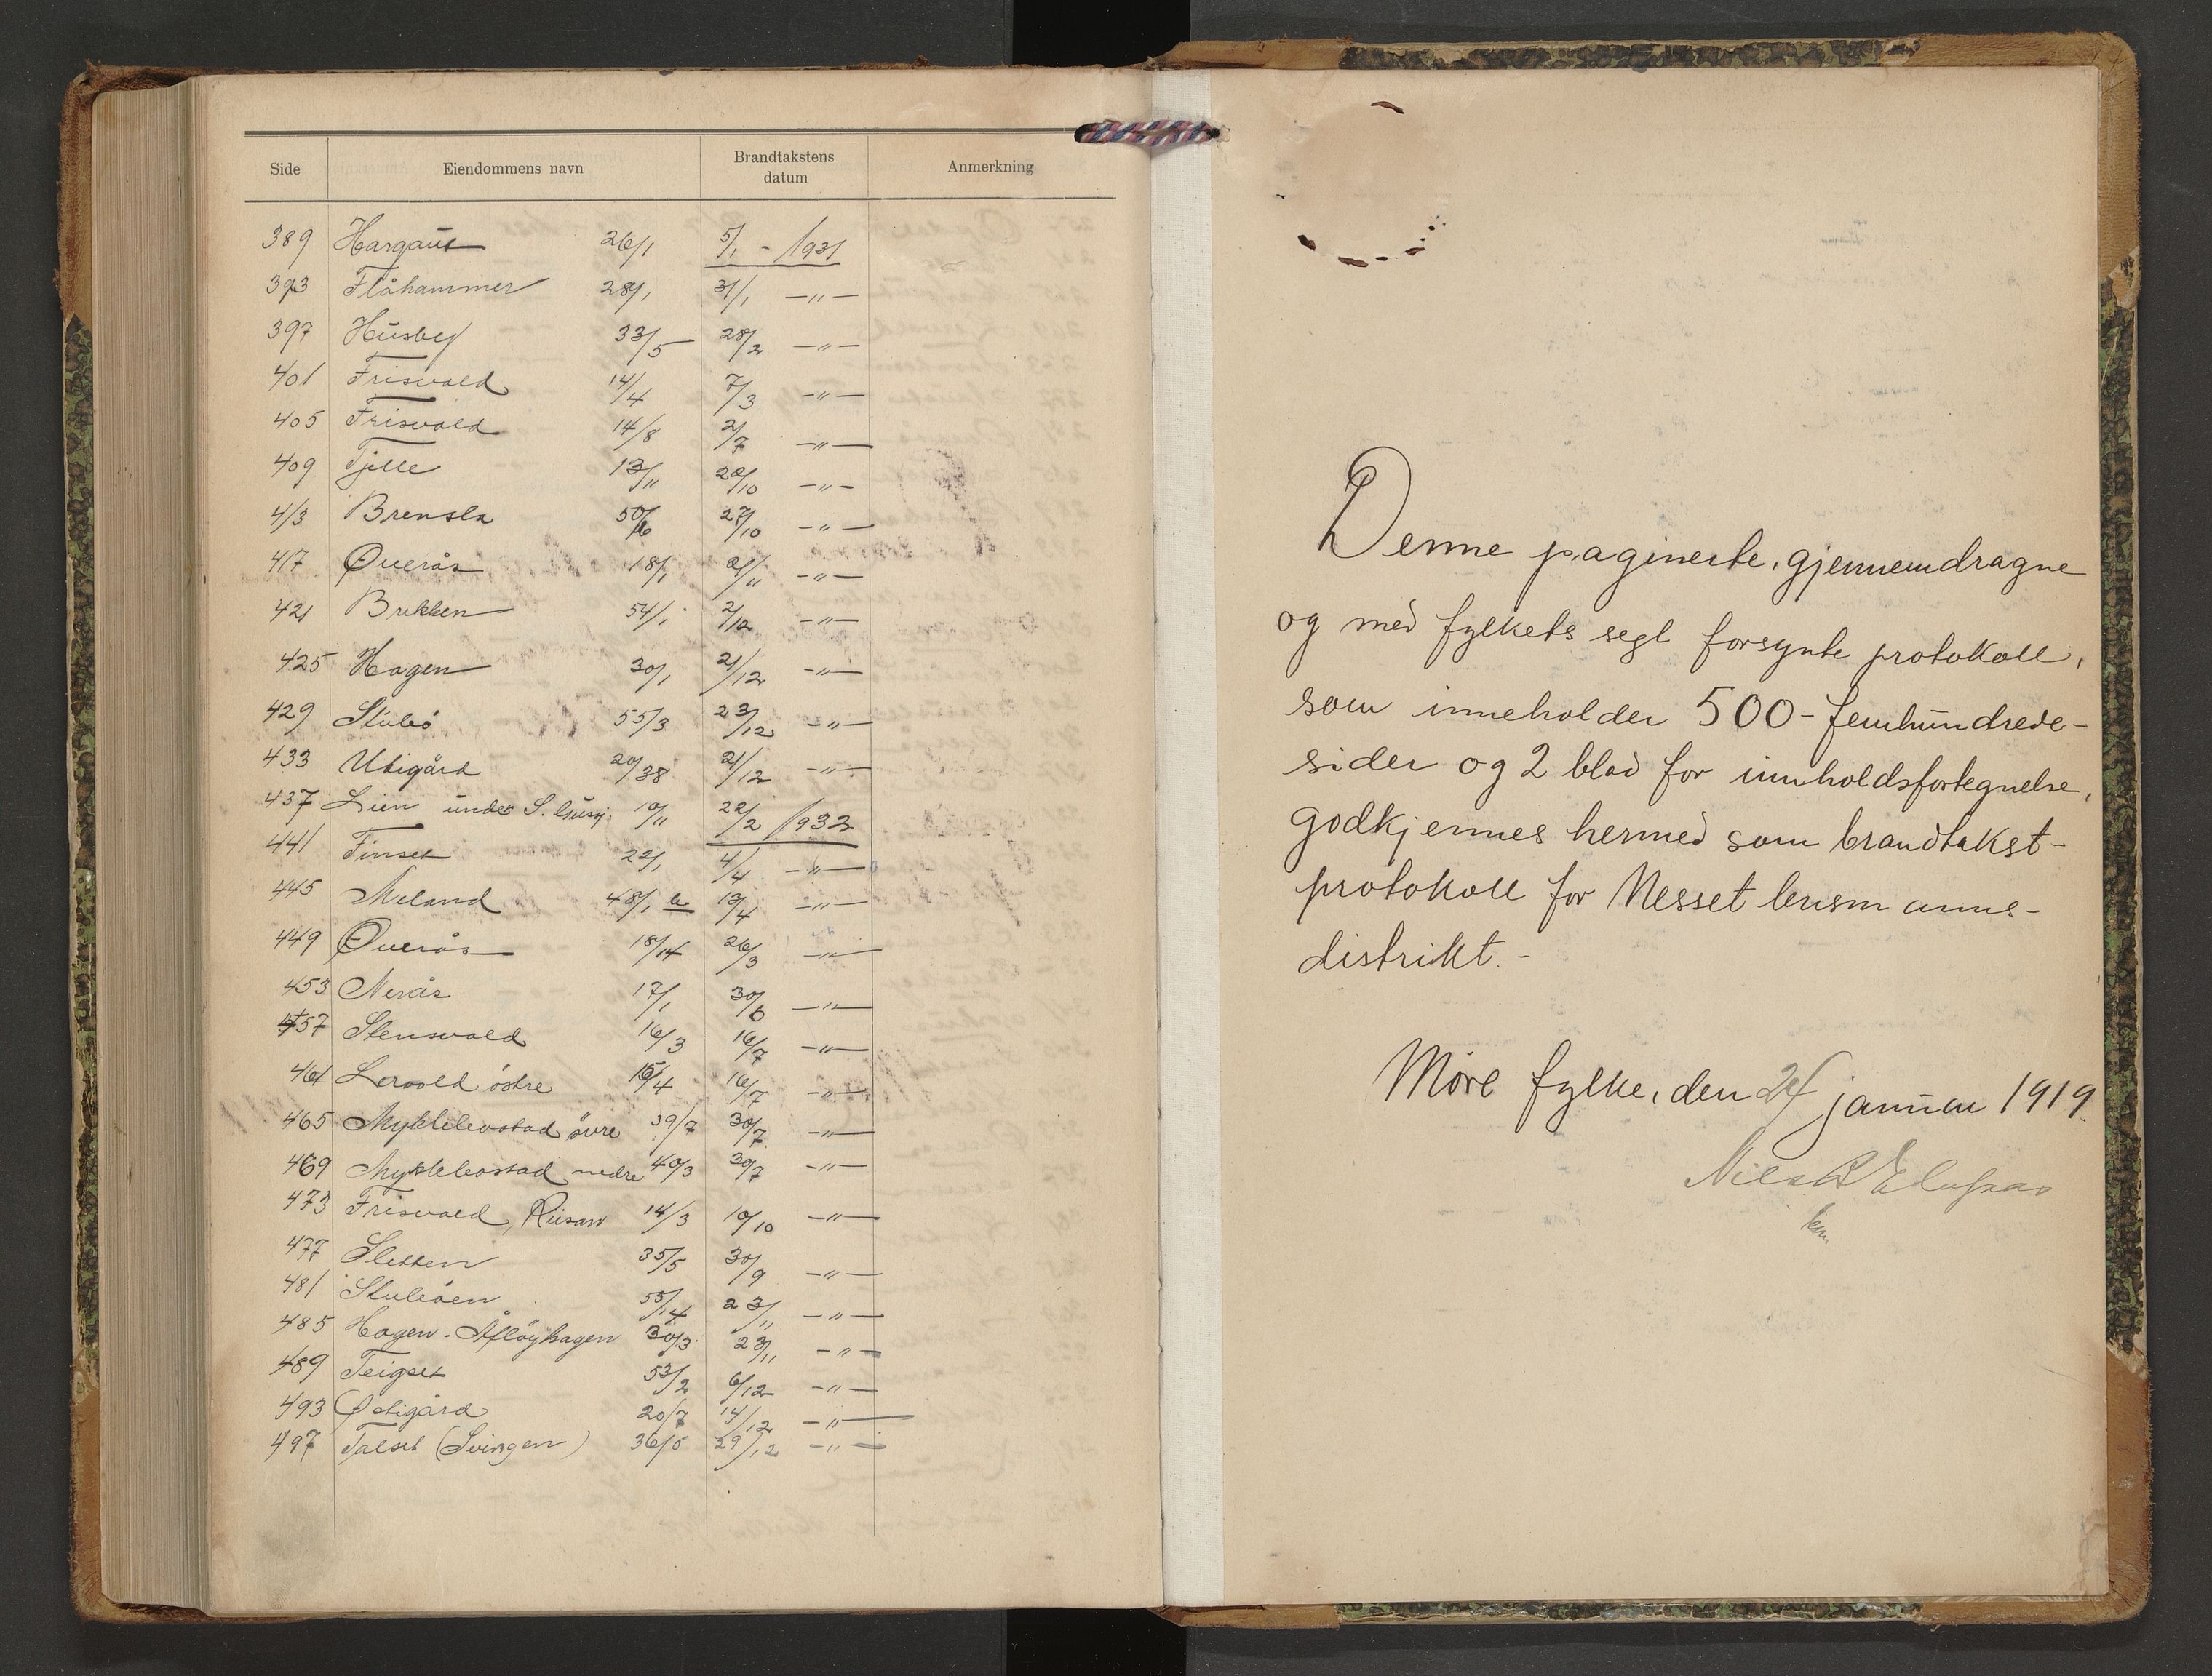 Side Eiendommens navn Brandtakstens datum Anmerkning
389 Hargaut 26/1 5/1 - 1931
393 Flåhammer 28/1 31/1 —"—
397 Husby 33/5 28/2 —"—
401 Frisvold 14/4 7/3 —"—
405 Frisvold 14/8 2/7 —"—
409 Tjelle 13/11 20/10 —"—
413 Brensla 50/6 27/10 —"—
417 Øverås 18/1 21/11 —"—
421 Brekken 54/1 2/12 —"—
425 Hagen 30/1 21/12 —"—
429 Stubö 55/3 23/12 —"—
433 Utigård 20/38 21/12 —"—
437 Lien under S. 10/11 22/2 1932
441 Finset 22/1 4/4 —"—
445 Meland 48/1 b 13/4 —"—
449 Øverås 18/14 26/3 —"—
453 Nerås 17/1 30/6 —"—
457 Stensvold 16/3 16/7 —"—
461 Lervold östre 15/4 16/7 —"—
465 Myklebostad övre 39/7 30/7 —"—
469 Myklebostad nedre 40/3 30/7 —"—
473 Frisvold, Risan 14/3 10/10 —"—
477 Sletten 35/5 30/9 —"—
481 Stuböen 55/14 23/11 —"—
485 Hagen - Åfløyhagen 30/3 23/11 —"—
489 Teigset 53/2 6/12 —"—
493 Østigård 20/7 14/12 —"—
497 Talset (Svingen) 36/5 29/12 —"—
Denne paginerte, gjennemdragne
og med fylkets segl forsynte protokoll,
som inneholder 500 - femhundrede -
sider og 2 blad for innholdsfortegnelse,
godkjennes hermed som brandtakst-
protokoll for Nesset lensmanns-
distrikt. -
Möre fylke, den 24 januar 1919.